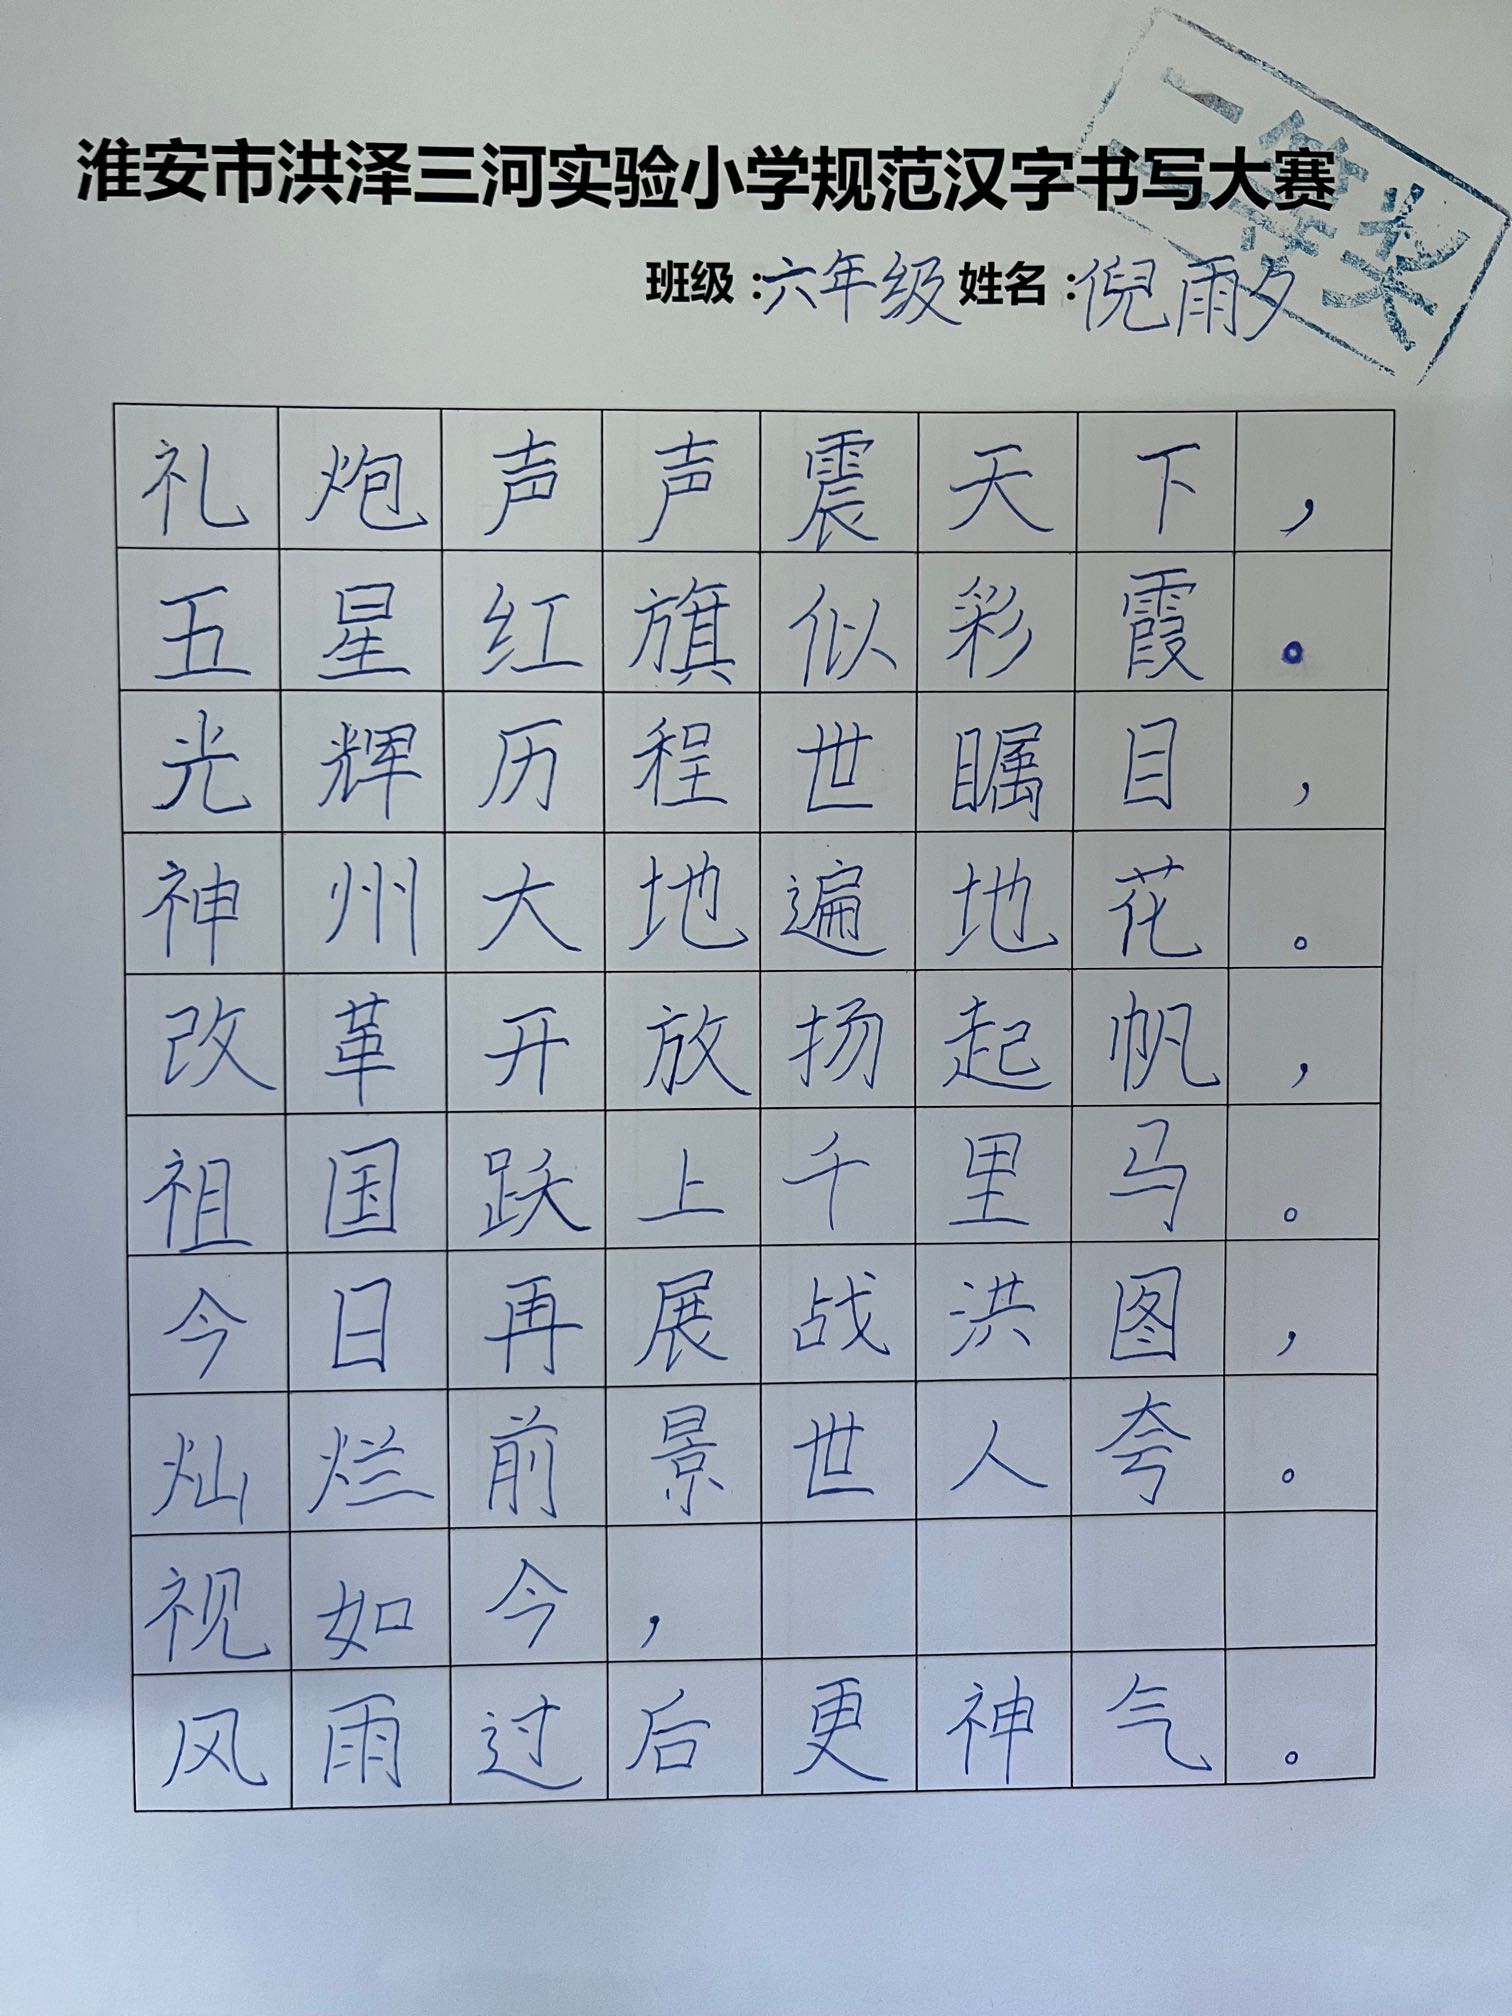 淮安市洪泽三河实验小学规范汉字书写大赛
二等奖
班级：六年级 姓名：倪雨夕
礼炮声声震天下，
五星红旗似彩霞。
光辉历程世瞩目，
神州大地遍地花。
改革开放扬起帆，
祖国跃上千里马。
今日再展战洪图，
灿烂前景世人夸。
视如今，
风雨过后更神气。